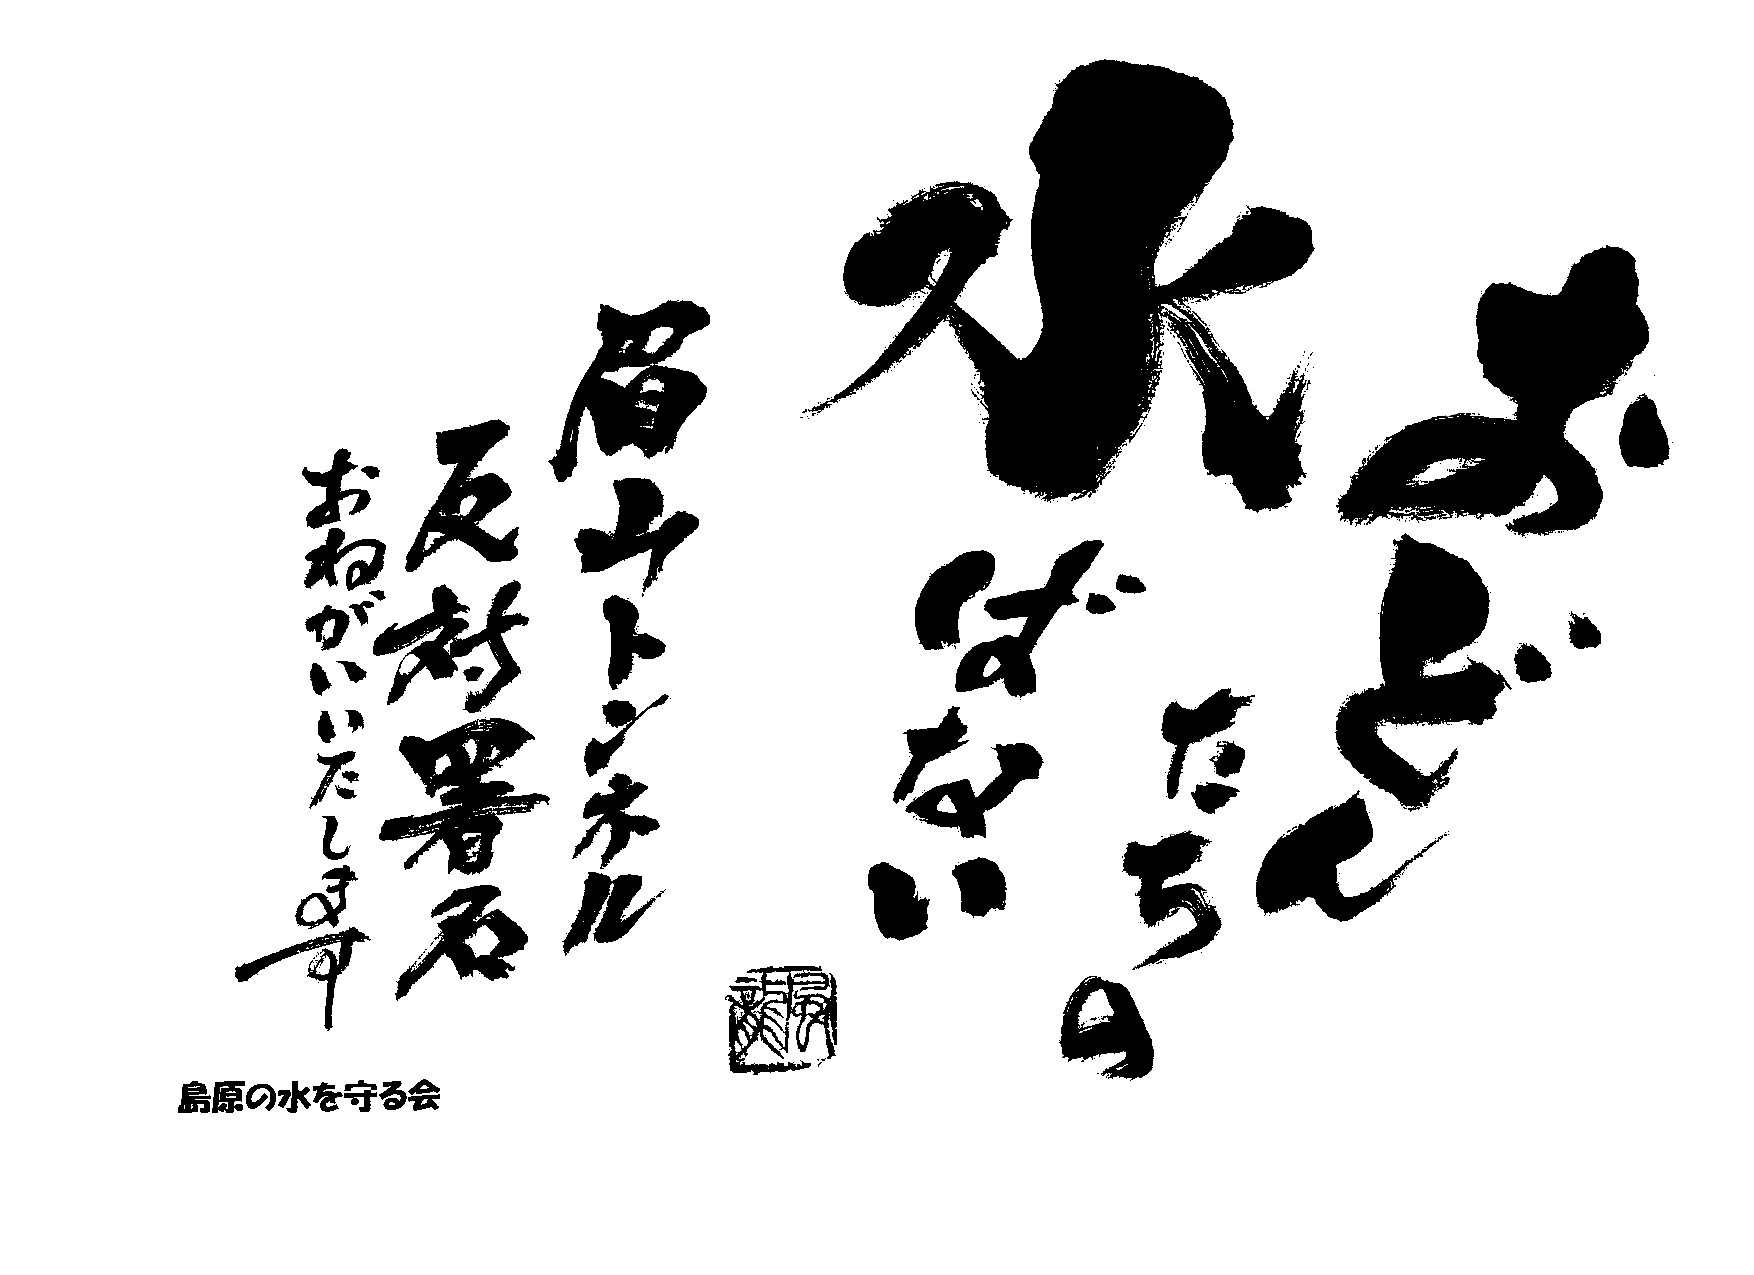 おどん
たちの
水ばない
眉山トンネル
反対署名
おねがいいたします
島原の水を守る会